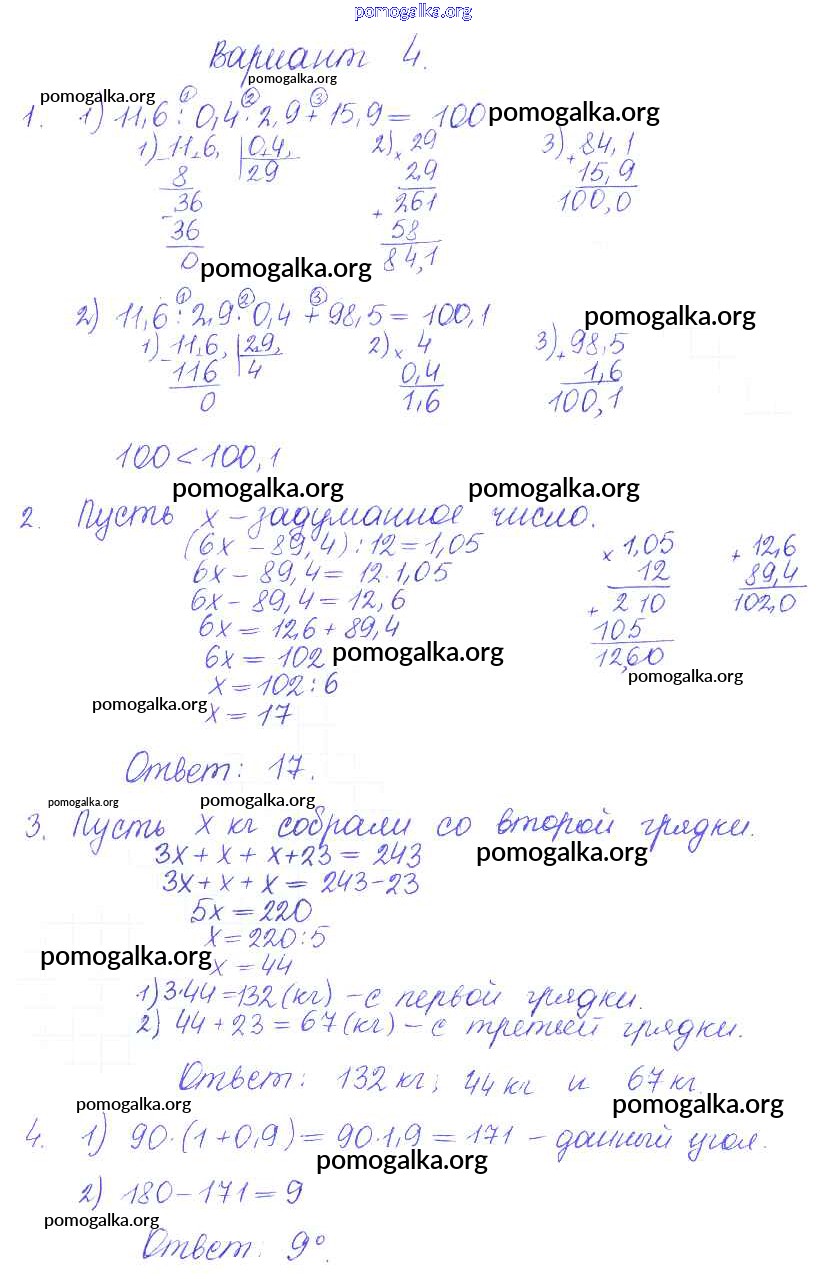 pomogalka.org
Вариант 4.
pomogalka.org
pomogalka.org
1. 1) 11,6 : 0,4 · 2,9 + 15,9 = 100 pomogalka.org
① ② ③
1) 11,6, 0,4, 2) 29 3) 84,1
8 29 × 2,9 + 15,9
36 261 100,0
36 + 58
0 84,1
pomogalka.org
① ② ③
2) 11,6 : 2,9 · 0,4 + 98,5 = 100,1 pomogalka.org
1) 11,6, 2,9, 2) × 4 3) + 98,5
116 4 0,4 1,6
0 1,6 100,1
100 < 100,1
pomogalka.org pomogalka.org
2. Пусть x – задуманное число.
(6x – 89,4) : 12 = 1,05 × 1,05 + 12,6
6x – 89,4 = 12 · 1,05 12 89,4
6x – 89,4 = 12,6 + 210 102,0
6x = 12,6 + 89,4 105
6x = 102 pomogalka.org 12,60
x = 102 : 6 pomogalka.org
pomogalka.org x = 17
Ответ: 17.
pomogalka.org pomogalka.org
3. Пусть x кг собрали со второй грядки.
3x + x + x + 23 = 243 pomogalka.org
3x + x + x = 243 – 23
5x = 220
x = 220 : 5
pomogalka.org x = 44
1) 3 · 44 = 132 (кг) – с первой грядки.
2) 44 + 23 = 67 (кг) – с третьей грядки.
Ответ: 132 кг; 44 кг и 67 кг.
pomogalka.org pomogalka.org
4. 1) 90 · (1 + 0,9) = 90 · 1,9 = 171 – данный угол.
pomogalka.org
2) 180 – 171 = 9
pomogalka.org
Ответ: 9°.